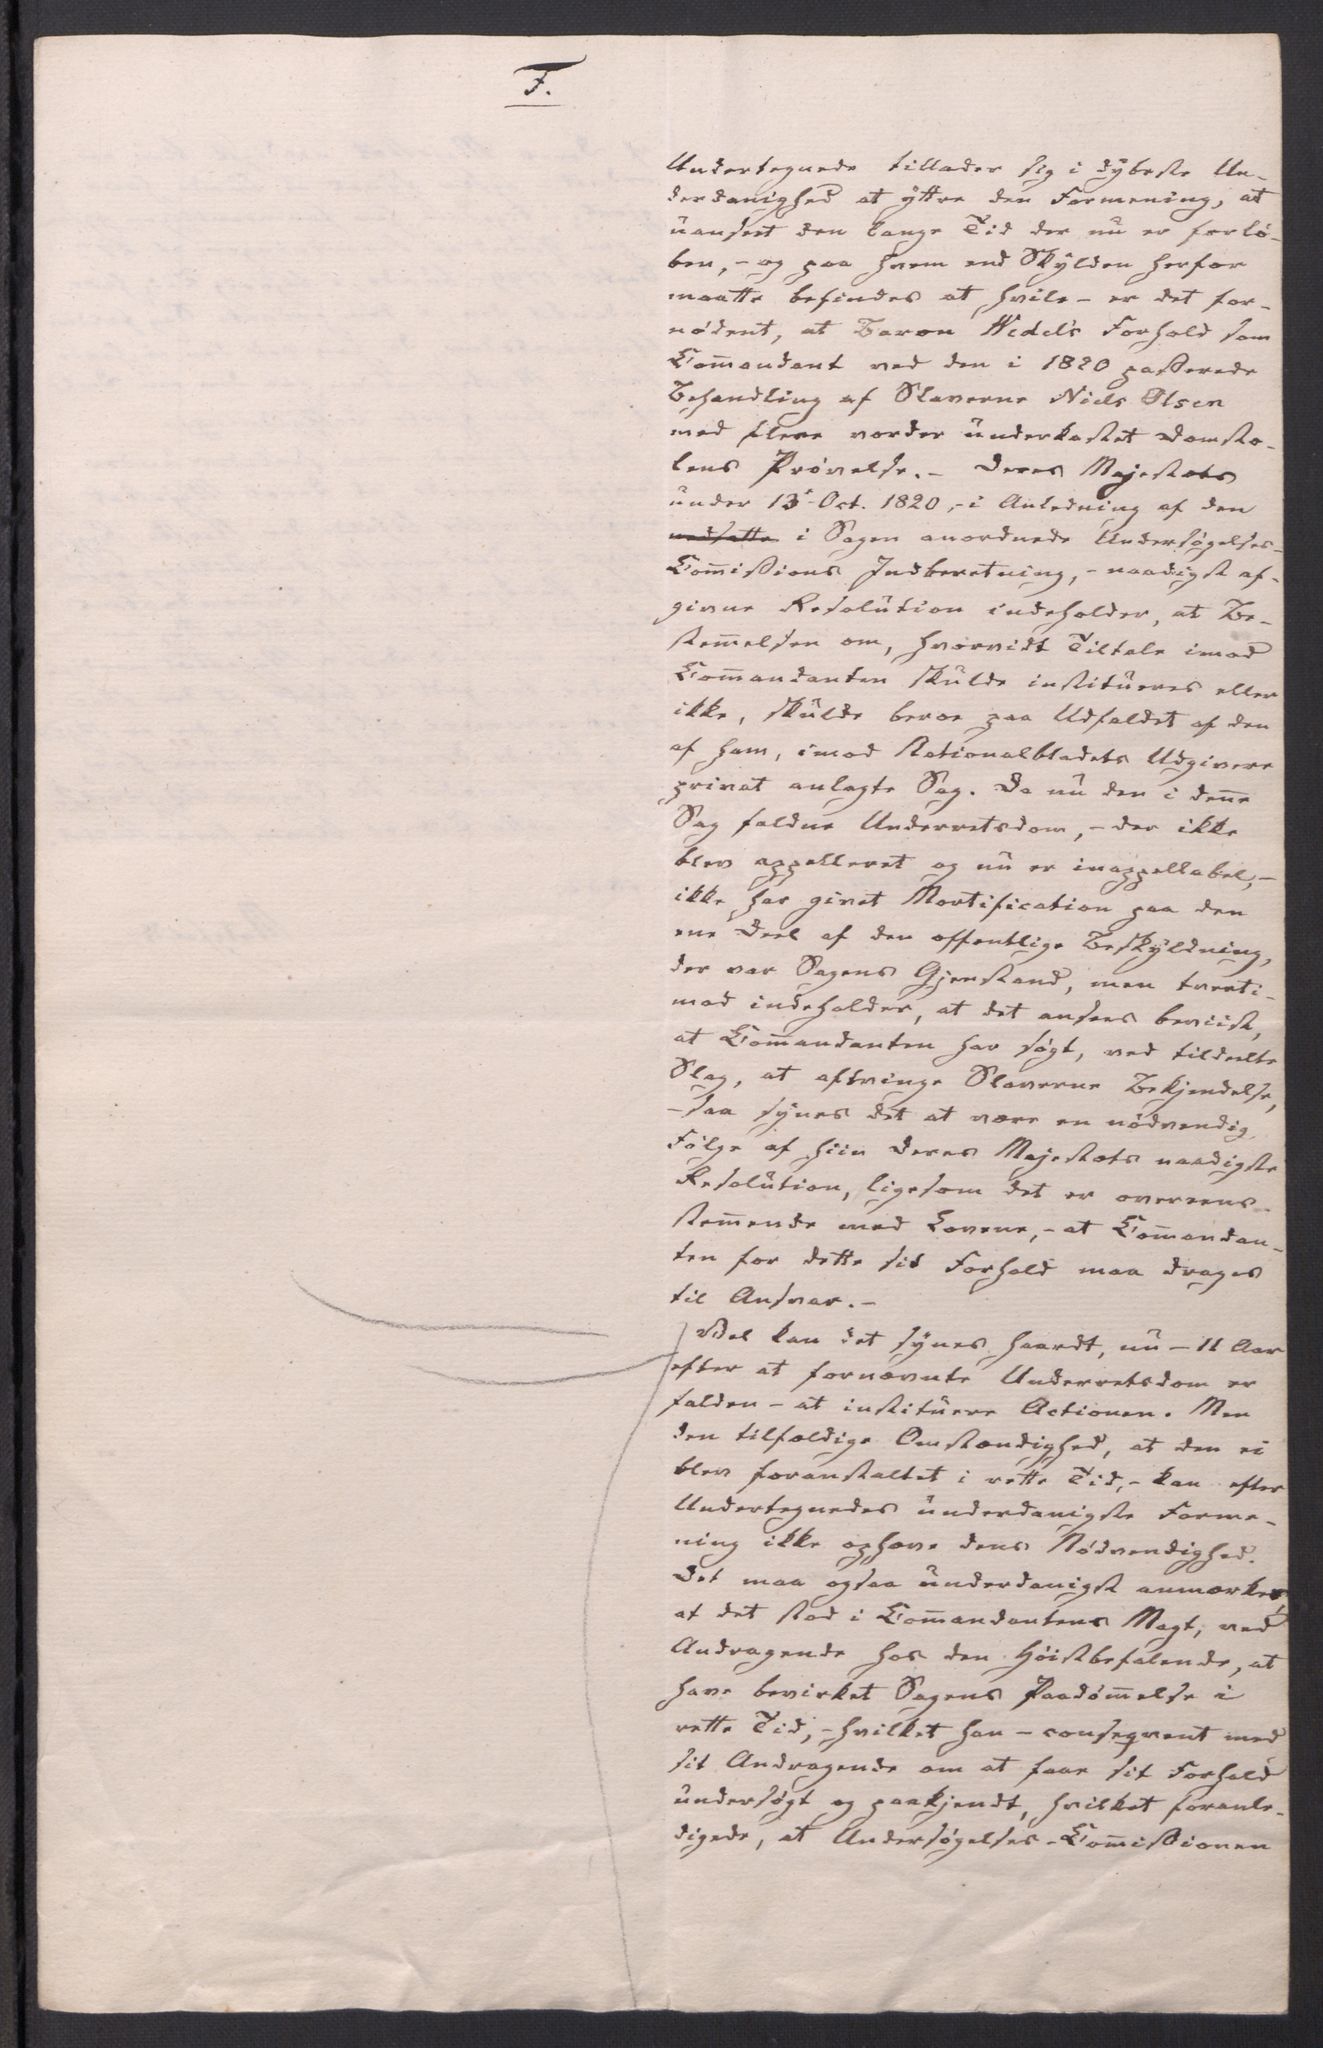 F.
Undertegnede tillader sig i dybeste Un-
derdanighed at yttre den Formening, at
uanseet den lange Tid der nu er forlö-
ben, – og paa hvem end Skylden herfor
maatte befindes at hvile – er det for-
nödent, at Baron Wedels Forhold som
Com̄andant ved den i 1820 passerede
Behandling af Slaverne Niels Olsen
med flere vorder underkastet Domsto-
lens Prövelse. – Deres Majestæts
under 13de Oct. 1820, – i Anledning af den
nedsatte i Sagen anordnede Undersögelses-
Com̄issions Indberetning, – naadigst af-
givne Resolution indeholder, at Be-
stem̄elsen om, hvorvidt Tiltale imod
Com̄andanten skulde institueres eller
ikke, skulde beroe paa Udfaldet af den
af ham, imod Nationalbladets Udgivere
privat anlagte Sag. Da nu den i den̄e
Sag faldne Underretsdom, – der ikke
blev appelleret og nu er inappellabel, –
ikke har givet Mortification paa den
ene Deel af den offentlige Beskyldning,
der var Sagens Gjenstand, men tverti-
mod indeholder, at det ansees beviist,
at Com̄andanten har sögt, ved tildeelte
Slag, at aftvinge Slaverne Bekjendelse,
– saa synes det at være en nödvendig
Fölge af hiin Deres Majestæts naadigste
Resolution, ligesom det er overeens-
stem̄ende med Lovene, – at Com̄andan-
ten for dette sit Forhold maa drages
til Ansvar. –
Vel kan det synes haardt, nu – 11 Aar
efter at fornævnte Underretsdom er
falden – at instituere Actionen. Men
den tilfældige Omstændighed, at den ei
blev foranstaltet i rette Tid, – kan efter
Undertegnedes underdanigste Forme-
ning ikke ophæve dens Nödvendighed.
Det maa ogsaa underdanigst anmærkes,
at det stod i Com̄andantens Magt, ved
Andragende hos den Höistbefalende, at
have bevirket Sagens Paadöm̄else i
rette Tid, – hvilket han – conseqvent med
sit Andragende om at faae sit Forhold
undersögt og paakjendt, hvilket foranle-
digede, at Undersögelses-Com̄issionen